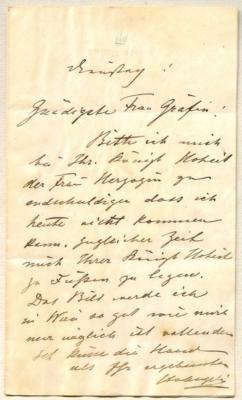 Dienstag!
Gnädigste Frau Gräfin!
Bitte ich mich
bei Ihr. Königl Hoheit
der Frau Herzogin zu
entschuldigen dass ich
heute nicht kommen
kann. Zugleicher Zeit
mich Ihrer Königl Hoheit
zu Füßen zu legen.
Das Bild werde ich
in Wien so gut wie mir
nur möglich ist vollenden
küsse die Hand
als Ihr ergebenster